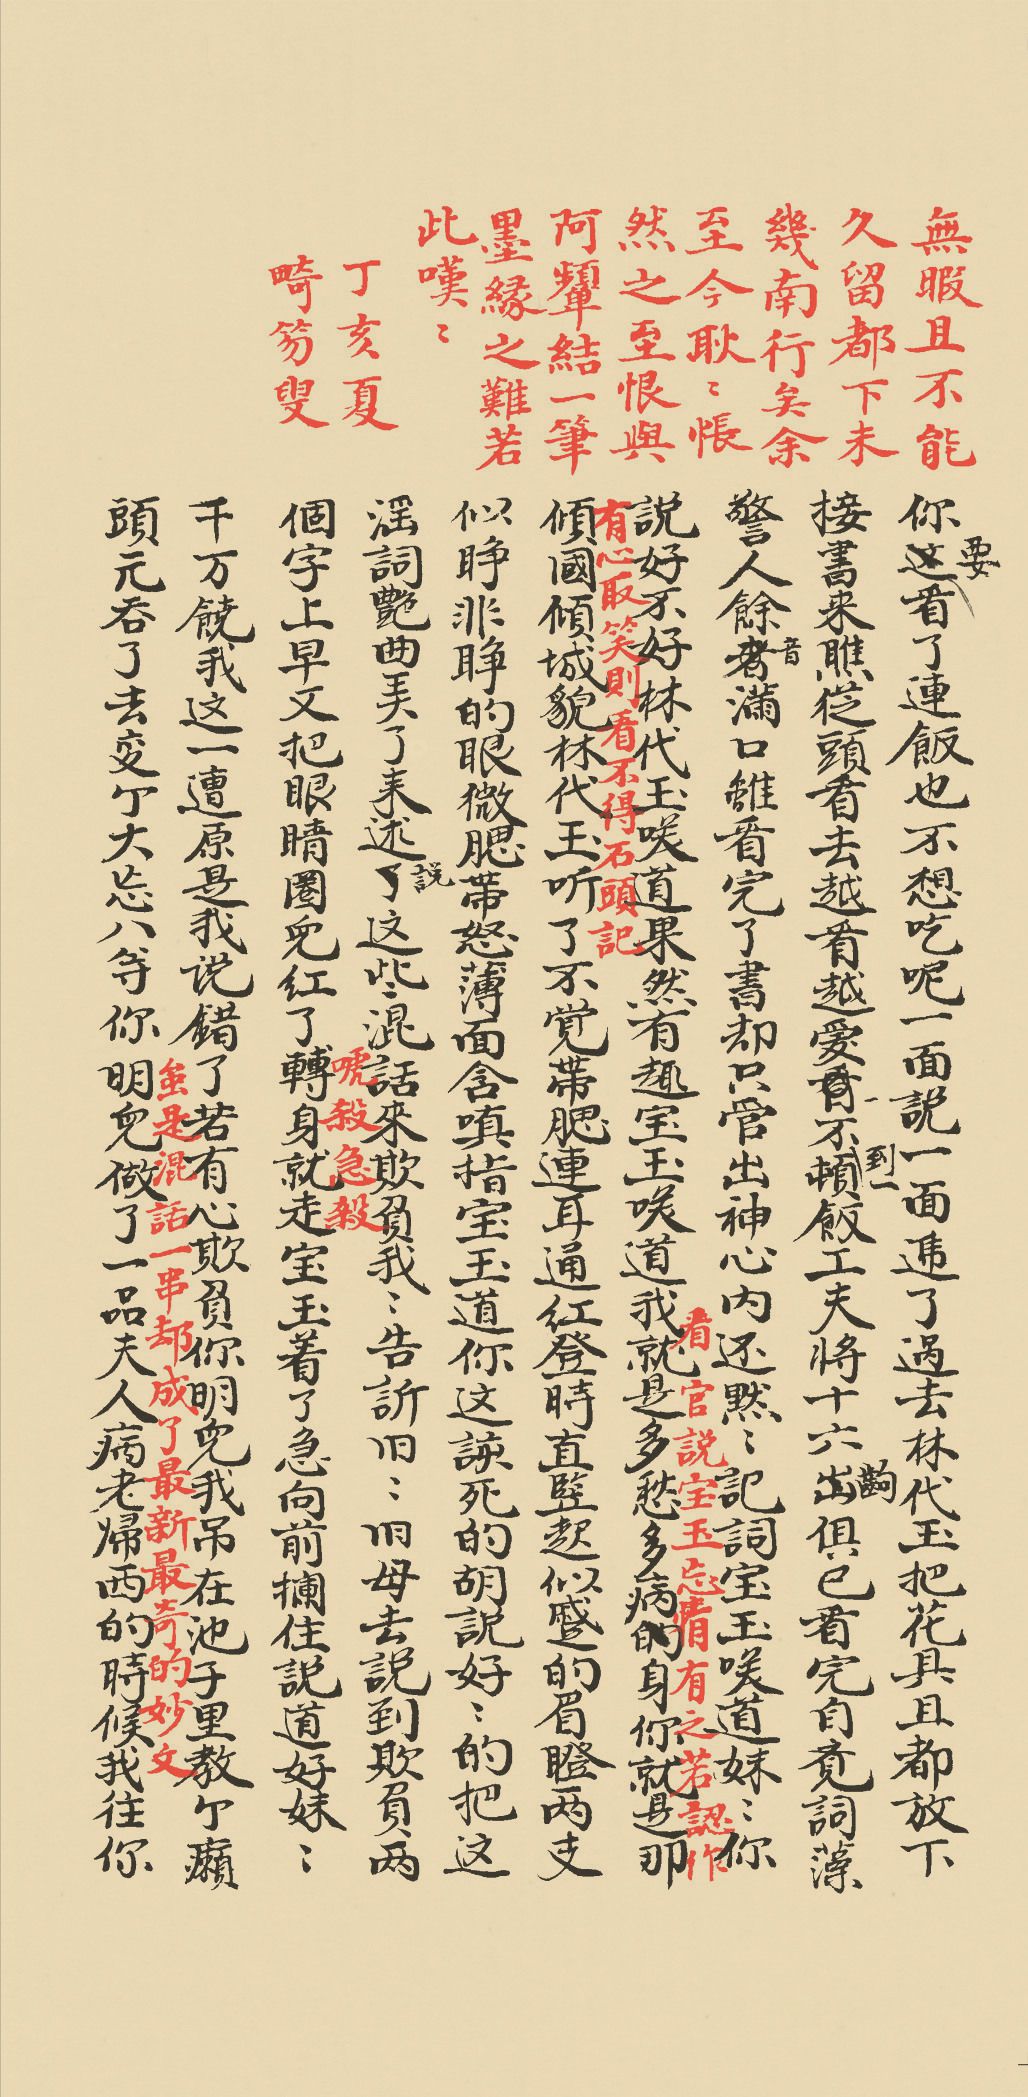 無暇且不能
久留都下未
幾南行矣余
至今耿〻悵
然之至恨與
阿顰結一筆
墨緣之難若
此嘆〻
丁亥夏
畸笏叟
你这看了連飯也不想吃呢一面説一面遞了過去林代玉把花具且都放下
要
接書来瞧從頭看去越看越愛看不頓飯工夫將十六出俱已看完自覚詞藻
到一
齣
警人餘者滿口雖看完了書却只管出神心内还黙〻記詞宝玉咲道妹〻你
音
看官説宝玉忘情有之若認作
説好不好林代玉咲道果然有趣宝玉咲道我就是多愁多病的身你就是那
有心取笑則看不得石頭記
傾國傾城貌林代玉听了不覚帶腮連耳通紅登時直竪起似蹙的眉瞪两支
似睁非睁的眼微腮帶怒薄面含嗔指宝玉道你这該死的胡説好〻的把这
淫詞艷曲弄了来述了这些混話來欺負我〻告訴旧〻旧母去説到欺負两
説
唬殺急殺
個字上早又把眼睛圈児紅了轉身就走宝玉着了急向前攔住説道好妹〻
千万饒我这一遭原是我说錯了若有心欺負你明児我吊在池子里教个癩
虽是混話一串却成了最新最奇的妙文
頭元吞了去变个大忘八等你明児做了一品夫人病老帰西的時候我往你